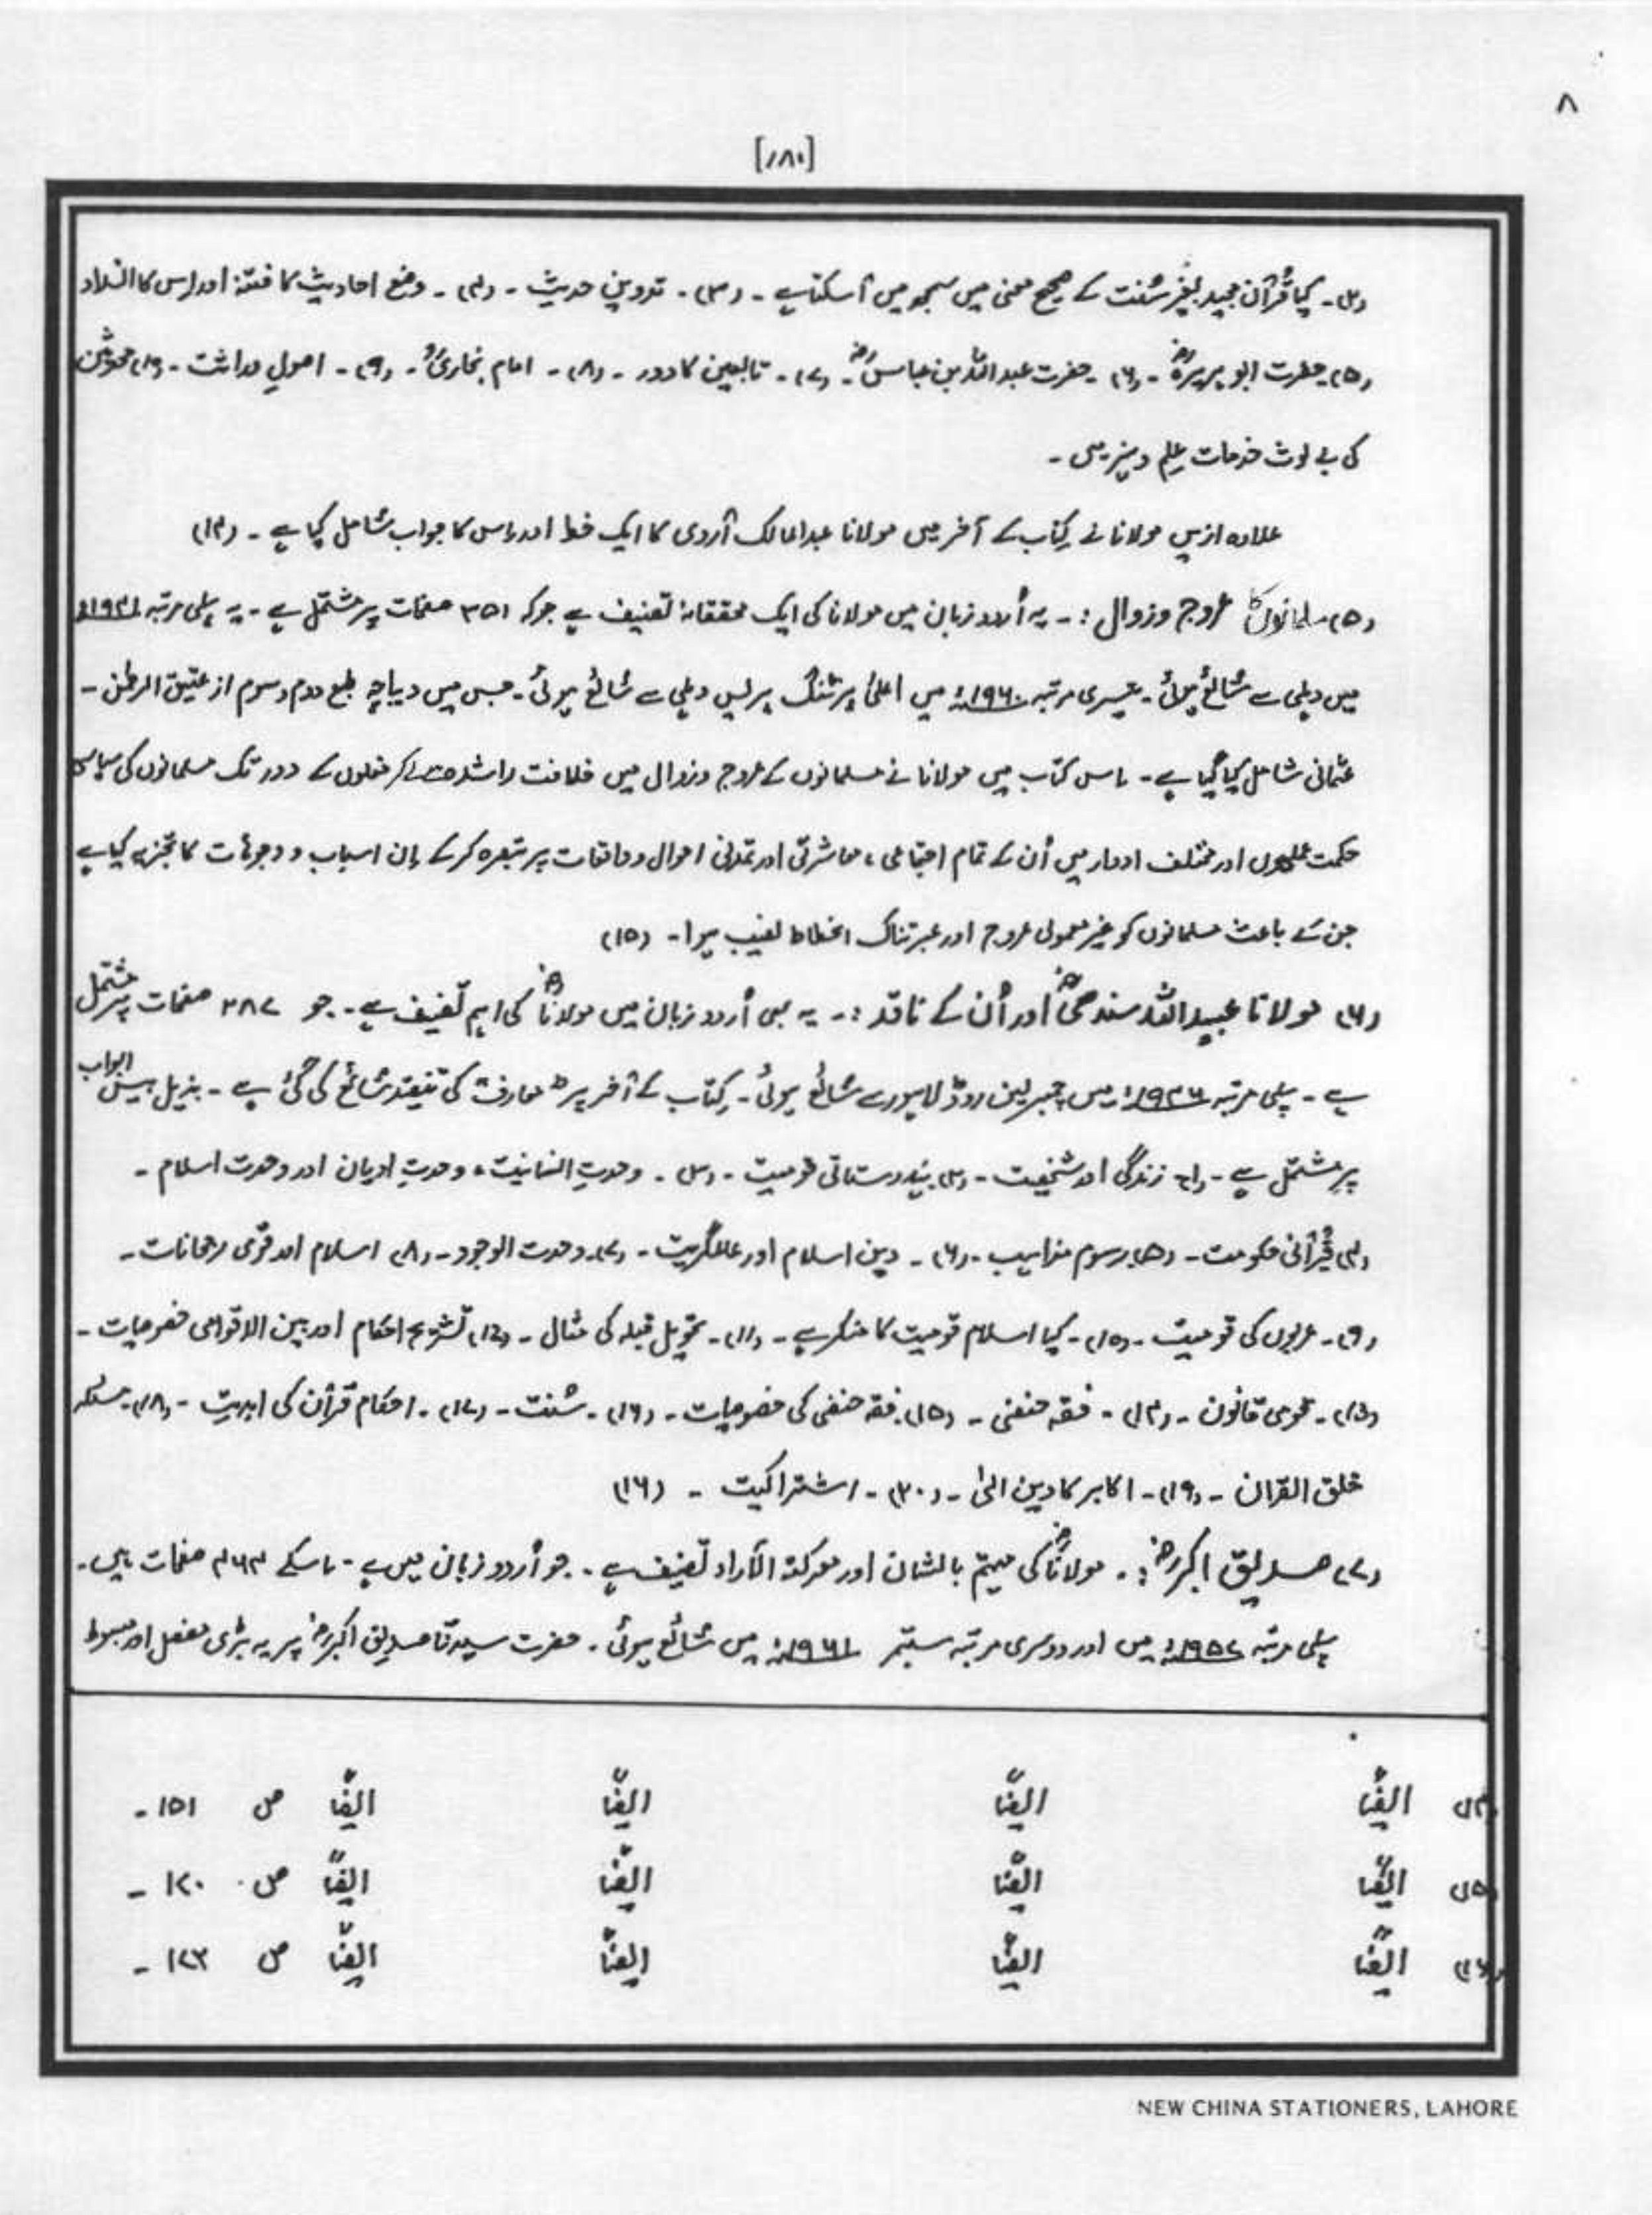 ۸
[۱۸۰]
(۲)۔ کیا قُرآن مجید بغیر سُنت کے صحیح معنی میں سمجھ میں آسکتا ہے ۔ (۳)۔ تدوینِ حدیث ۔ (۴)۔ وضع احادیث کا فتنہ اور اس کا انسداد
(۵)۔ حضرت ابو ہریرہؓ ۔ (۶)۔ حضرت عبداللہ بن عباسؓ ۔ (۷)۔ تابعین کا دور ۔ (۸)۔ امام بخاریؒ ۔ (۹)۔ اصولِ ۔ (۱۰) محدثین
کی بے لوث خدمات علم و میں ۔
علاوہ ازیں مولانا نے کتاب کے آخر میں مولانا عبدالمالک آروی کا ایک خط اور اس کا جواب شامل کیا ہے ۔ (۱۴)
(۵) مسلمانوں کا عروج و زوال :۔ یہ اُردو زبان میں مولانا کی ایک محققانہ تصنیف ہے جو کہ ۳۵۱ صفحات پر مشتمل ہے ۔ یہ پہلی مرتبہ
میں دہلی سے شائع ہوئی ۔ تیسری مرتبہ ۱۹۶۰ء میں اعلیٰ پرنٹنگ پریس دہلی سے شائع ہوئی ۔ جس میں دیباچہ طبع دوم و سوم از عتیق الرحمٰن ۔
عثمانی شامل کیا گیا ہے ۔ اس کتاب میں مولانا نے مسلمانوں کے عروج و زوال میں خلافت راشدہ سے لے کر مغلوں کے دور تک مسلمانوں کی سیاسی
حکمت عملیوں اور مختلف ادوار میں اُن کے تمام اجتماعی ، معاشرتی اور تمدنی احوال و واقعات پر تبصرہ کرکے ان اسباب و وجوہات کا تجزیہ کیا ہے
جن کے باعث مسلمانوں کو غیر معمولی عروج اور عبرتناک انحطاط نصیب ہوا ۔ (۱۵)
(۶) مولانا عبیداللہ سندھیؒ اور اُن کے ناقد :۔ یہ بھی اُردو زبان میں مولاناؒ کی اہم تصنیف ہے ۔ جو ۳۸۷ صفحات پر مشتمل
ہے ۔ پہلی مرتبہ ۱۹۴۶ء میں چیمبرلین روڈ لاہور سے شائع ہوئی ۔ کتاب کے آخر پر معارف کی تنقید شائع کی گئی ہے ۔ بیس ابواب
پر مشتمل ہے ۔ (۱) زندگی اور شخصیت ۔ (۲) ہندوستانی قومیت ۔ (۳)۔ وحدتِ انسانیت ، وحدتِ ادیان اور وحدت اسلام ۔
(۴) قُرآنی حکومت ۔ (۵) رسوم مذاہب ۔ (۶)۔ دین اسلام اور عالمگیریت ۔ (۷)۔ وحدت الوجود ۔ (۸) اسلام اور قومی رجحانات ۔
(۹)۔ عربوں کی قومیت ۔ (۱۰)۔ کیا اسلام قومیت کا منکر ہے ۔ (۱۱)۔ تحویل قبلہ کی مثال ۔ (۱۲) تشریح احکام اور بین الاقوامی خصوصیات ۔
(۱۳)۔ قومی قانون ۔ (۱۴)۔ فقہ حنفی ۔ (۱۵)۔ فقہ حنفی کی خصوصیات ۔ (۱۶)۔ سُنت ۔ (۱۷)۔ احکام قُرآن کی ابدیت ۔ (۱۸)۔ مسئلہ
خلق القران ۔ (۱۹)۔ اکابر کا دین الٰہی ۔ (۲۰)۔ اشتراکیت ۔ (۱۶)
(۷) صدیق اکبرؓ :۔ مولاناؒ کی مہتم بالشان اور معرکۃ الآراء تصنیف ہے ۔ جو اُردو زبان میں ہے ۔ اسکے ۴۶۴ صفحات ہیں ۔
پہلی مرتبہ ۱۹۵۷ء میں اور دوسری مرتبہ ستمبر ۱۹۶۱ء میں شائع ہوئی ۔ حضرت سیدنا صدیق اکبرؓ پر یہ بڑی مفصل اور مبسوط
(۱۴) ایضًا ایضًا ایضًا ایضًا ص ۱۵۱ ۔
(۱۵) ایضًا ایضًا ایضًا ایضًا ص ۱۷۰ ۔
(۱۶) ایضًا ایضًا ایضًا ایضًا ص ۱۷۳ ۔
NEW CHINA STATIONERS, LAHORE